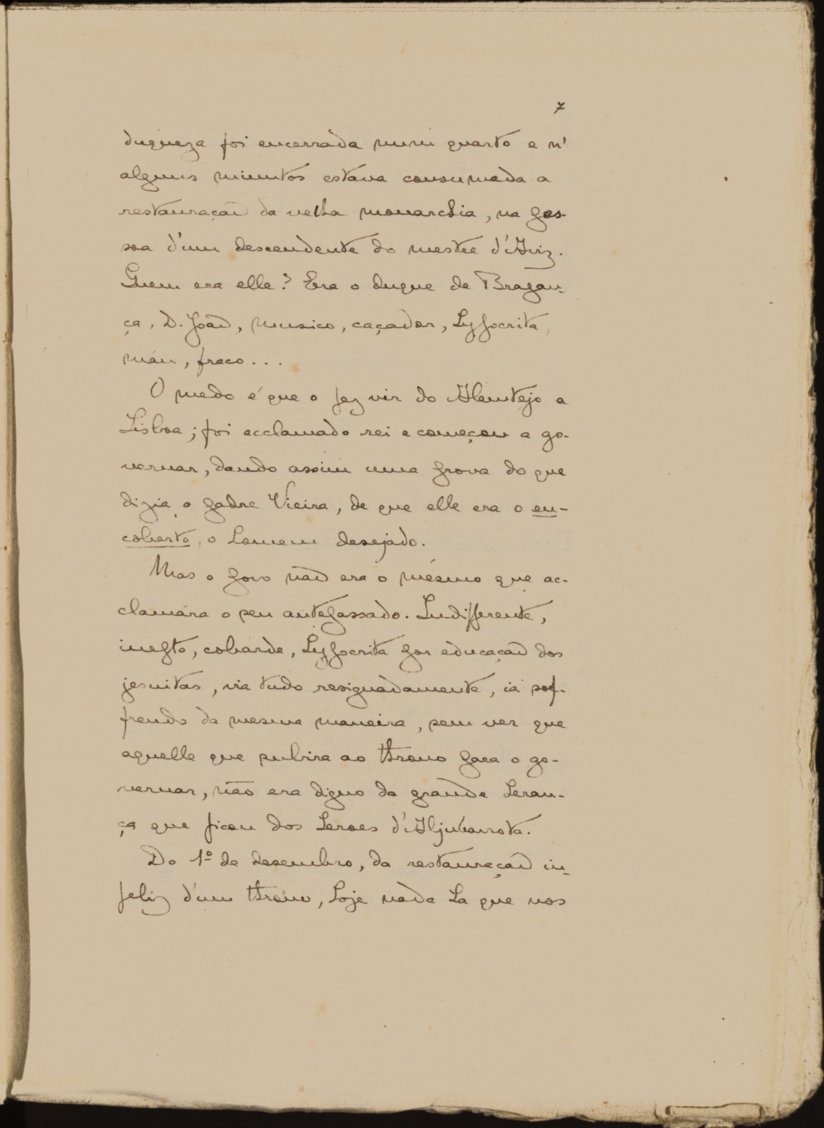 7
duqueza foi encerrada num quarto e n'
alguns minutos estáva consumada a
restauração da velha monarchia, na pes-
soa d'um descendente do mestre d'Aviz.
Quem era elle? Era o duque de Bragan-
ça, D. João, musico, caçador, hypocrita,
máu, fraco...
O medo é que o fez vir do Alemtejo a
Lisboa; foi acclamado rei e começou a go-
vernar, dando assim uma prova do que
dizia o padre Vieira, de que elle era o en-
coberto, o homem desejado.
Mas o povo não era o mésmo que ac-
clamára o seu antepassado. Indifferente,
inepto, cobarde, hypocrita por educação dos
jesuitas, via tudo resignadamente, ia sof-
frendo da mesma maneira, sem ver que
aquelle que subira ao throno para o go-
vernar, não era digno da grande heran-
ça que ficou dos heroes d'Aljubarrota.
Do 1º de desembro, da restauração in-
feliz d'um throno, hoje nada ha que nos